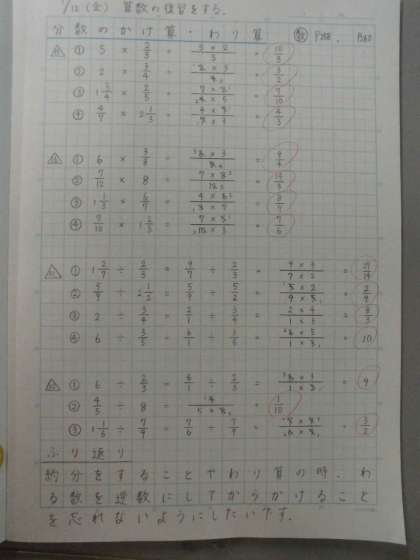 1/12 (金) 算数の復習をする。
分数のかけ算・わり算 数 P58. P60
① 5 × 2/3 = 5×2/3 = 10/3
② 2 × 3/4 = 2×3/4 = 3/2
③ 1 3/4 × 2/5 = 7×2/4×5 = 7/10
④ 4/7 × 2 1/3 = 4×7/7×3 = 4/3
① 6 × 3/8 = 6×3/8 = 9/4
② 7/12 × 8 = 7×8/12 = 14/3
③ 1 1/3 × 6/7 = 4×6/3×7 = 8/7
④ 7/10 × 1 2/3 = 7×5/10×3 = 7/6
① 1 2/7 ÷ 2/3 = 9/7 ÷ 2/3 = 9×3/7×2 = 27/14
② 5/9 ÷ 2 1/2 = 5/9 ÷ 5/2 = 5×2/9×5 = 2/9
③ 2 ÷ 3/4 = 2/1 ÷ 3/4 = 2×4/1×3 = 8/3
④ 6 ÷ 3/5 = 6/1 ÷ 3/5 = 6×5/1×3 = 10
① 6 ÷ 2/3 = 6/1 ÷ 2/3 = 6×3/1×2 = 9
② 4/5 ÷ 8 = 4/5×8 = 1/10
③ 1 1/6 ÷ 7/9 = 7/6 ÷ 7/9 = 7×9/6×7 = 3/2
ふり返り
約分をすることやわり算の時、わ
る数を逆数にしてからかけること
を忘れないようにしたいです。